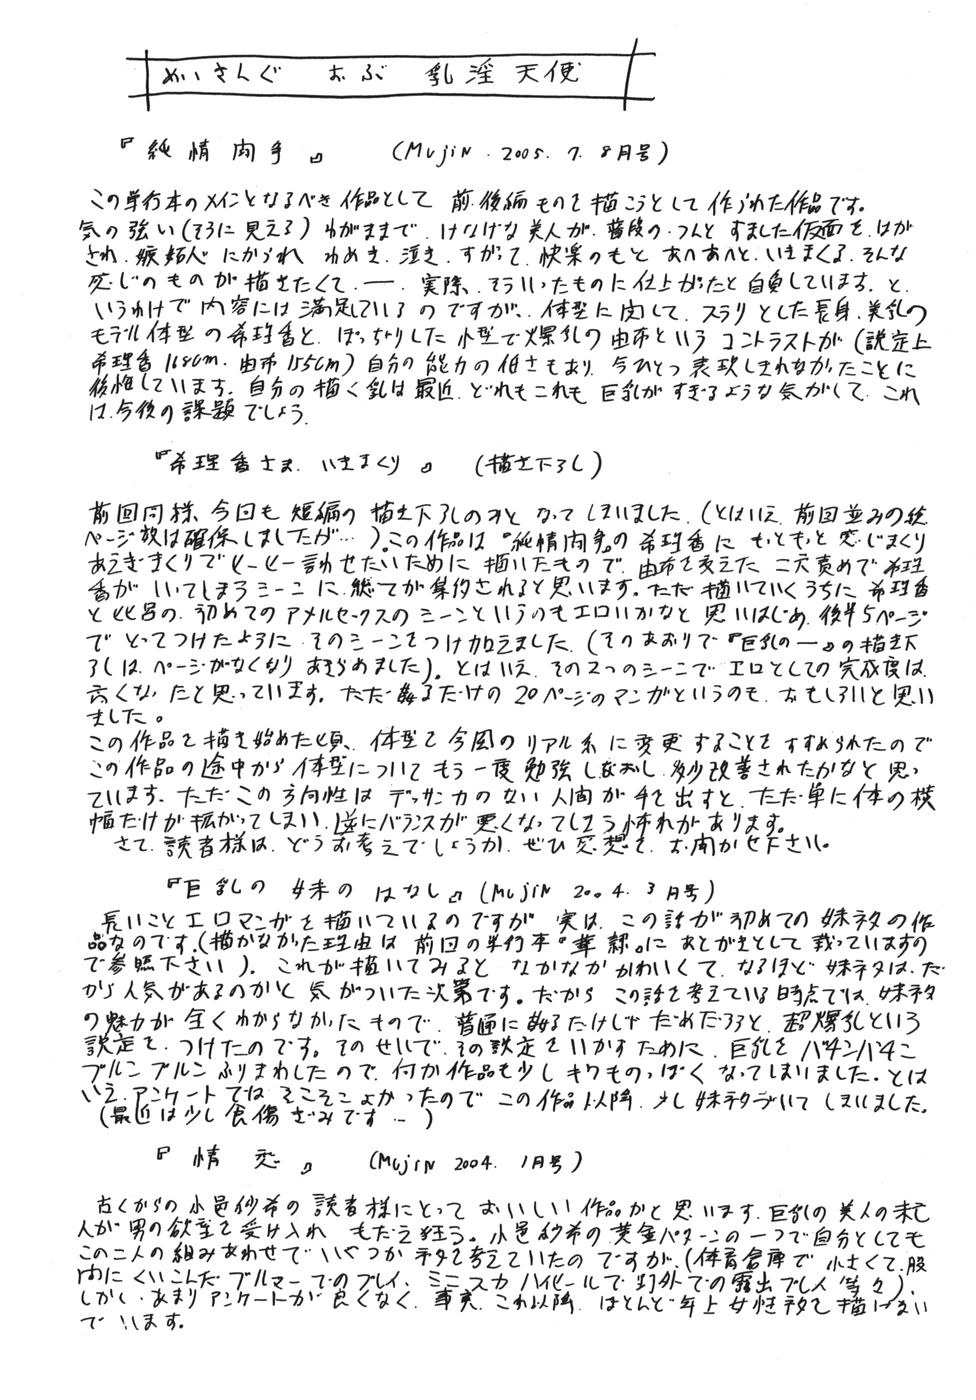 めいきんぐ おぶ 乳淫天使
『純情肉手』 (MujiN. 2005. 7. 8月号)
この単行本のメインとなるべき作品として 前.後編ものを描こうとして作られた作品です。
気の強い(そうに見える)わがままで、けなげな美人が、普段の、つんと すました仮面を、はが
され、嫉妬心にかられ わめき、泣き、すがって、快楽のもと あへあへと、いきまくる、そんな
感じのものが描きたくて.ー. 実際、そういったものに仕上がったと自負しています。と、
いうわけで内容には満足しているのですが、体型に関して、スラリとした長身、美乳の
モデル体型の希理香と、ぽっちゃりした小型で爆乳の由布というコントラストが(設定上
希理香168cm.由布155cm)自分の能力の低さもあり、今ひとつ表現しきれなかったことに
後悔しています。自分の描く乳は最近、どれもこれも 巨乳がすぎるような気がして、これ
は、今後の課題でしょう。
『希理香さま、いきまくり』 (描き下ろし)
前回同様、今回も短編の描き下ろしのみと なってしまいました。(とはいえ、前回並みの総
ページ数は確保しましたが…)。この作品は『純情肉手』の希理香に もともと感じまくり
あえぎまくりでヒーヒー言わせたいために描いたもので、由布を交えた二穴責めで希理
香がいってしまうシーンに総てが集約されると思います。ただ描いていくうちに希理香
と 呂の、初めてのアナルセックスのシーンというのもエロいかなと思いはじめ、後半5ページ
でとってつけたようにそのシーンをつけ加えました。(そのあおりで『巨乳の―』の描き下
ろしは、ページがなくなり あきらめました)。とはいえ、その2つのシーンでエロとしての完成度は、
高くなったと思っています。ただ姦るだけの20ページのマンガというのも、おもしろいと思い
ました。
この作品を描き始めた頃、体型を今風のリアル系に変更することをすすめられたので
この作品の途中から体型についてもう一度勉強しなおし、多少改善されたかなと思っ
ています。ただこの方向性はデッサン力のない人間が手を出すと、ただ単に体の横
幅だけが拡がってしまい、逆にバランスが悪くなってしまう怖れがあります。
さて、読者様は、どうお考えでしょうか、ぜひ感想を、お聞かせ下さい。
『巨乳の妹のはなし』(MujiN 2004. 3月号)
長いことエロマンガを描いているのですが 実は、この話が初めての妹ネタの作
品なのです。(描かなかった理由は前回の単行本『華 』にあとがきとして載っていますの
で参照下さい)。これが描いてみると なかなかかわいくて、なるほど妹ネタは、だ
から人気があるのかと気がついた次第です。だから この話を考えている時点では、妹ネタ
の魅力が全くわからなかったもので、普通に姦るだけじゃだめだろうと、超爆乳という
設定を、つけたのです。そのせいで、その設定をいかすために、巨乳をバチンバチン
ブルンブルンふりまわしたので、何か作品も少しキワものっぽくなってしまいました。とは
いえ、アンケートでは、そこそこよかったので この作品以降、少し妹ネタづいてしまいました。
(最近は少し食傷ぎみです…)
『情恋』 (MujiN 2004. 1月号)
古くからの小邑紗希の読者様にとって おいしい作品かと思います。巨乳の美人の未亡
人が男の欲望を受け入れ もだえ狂う。小邑紗希の黄金パターンの一つで自分としても
この二人の組みあわせでいくつかネタを考えていたのですが、(体育倉庫で 小さくて、股
間にくいこんだブルマーでのプレイ、ミニスカハイヒールで町外での露出プレイ等々)。
しかし、あまりアンケートが良くなく、事実、これ以降、ほとんど年上女性ネタを描けないで
でいます。